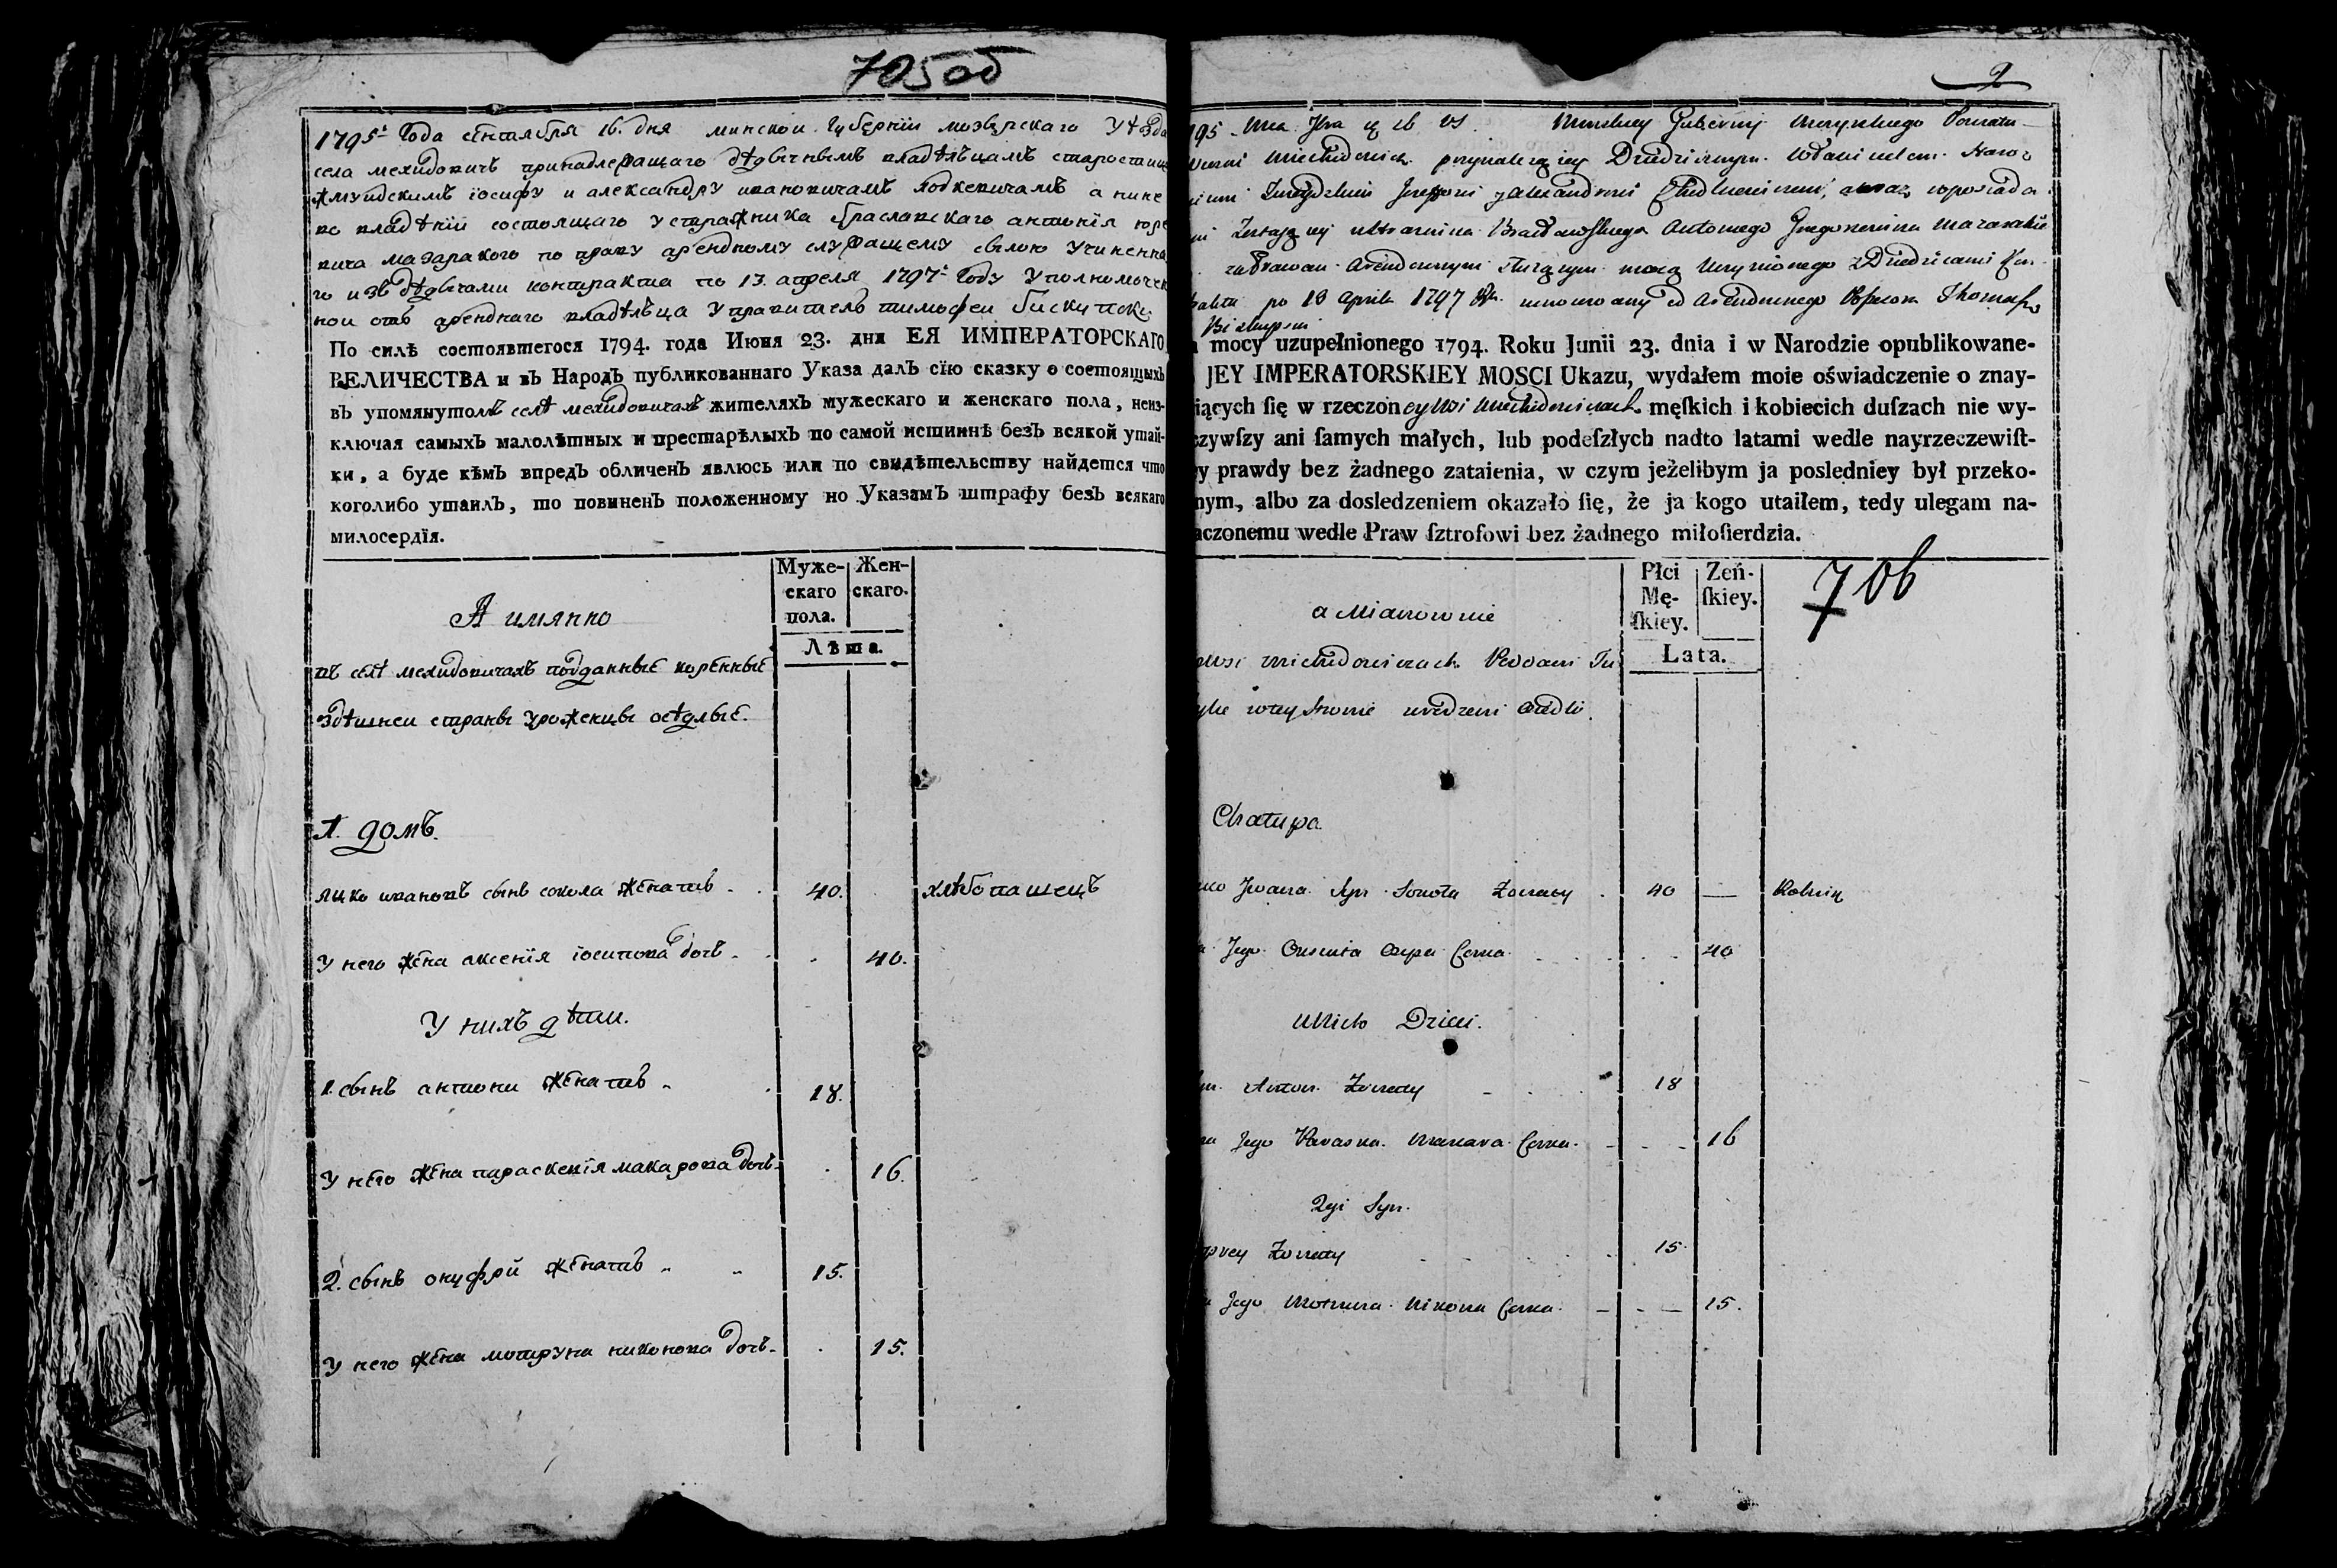 705 об
1795г Года сентября 16. дня минской губернии мозырскаго уѣзда
села мехидовичъ принадлежащаго дѣдычнымъ владѣльцамъ старостиц
жмуйдскимъ іосифу и александру ивановичамъ ходкевичамъ а нине
во владѣніи состоящаго у стражника браславскаго антонія
вича мазаракого по праву арендному служащему силою учиненна
го изъ дѣдычами контракта по 13. апреля 1797г Году уполномочен
ной отъ арендного владѣльца управитель тимофеи бискупски
По силѣ состоявшегося 1794. года Июня 23. дня ЕЯ ИМПЕРАТОРСКАГО
ВЕЛИЧЕСТВА и въ Народъ публикованнаго Указа далъ сїю сказку о состоящыхъ
въ упомянутомъ селѣ мехидовичахъ жителяхъ мужескаго и женскаго пола, неиз-
ключая самыхъ малолѣтныхъ и престарѣлыхъ по самой истиннѣ безъ всякой утай-
ки, а буде кѣмъ впредъ обличенъ явлюсь или по свидѣтельству найдется что
коголибо утаилъ, то повиненъ положенному но Указамъ штрафу безъ всякаго
милосердїя.
А имянно
Муже-
скаго
пола.
Жен-
скаго.
Лѣта.
въ селѣ мехидовичахъ подданные коренные
здѣшнеи страны уроженцы осѣдлые.
1. домъ.
яцко ивановъ сынъ сокола женатъ 40. хлѣбопашецъ
у него жена аксенія іосипова дочь 40.
У нихъ дѣти.
1. сынъ антони женатъ 18.
у него жена параскевія макарова дочь 16.
2. сынъ онуфрй женатъ 15.
у него жена мотруна никонова дочь 15.
2
195 Mca 16 Minskiey Gubernij Mozyrskiego Powiatu
Miechidowicz przynależącey Dziedzicznym Władcielem
Zmuydzkim Jozefowi y Alexandrowi Chodkiewiczom, a w posiada
Zostaiącey u Strażnika Bracławskiego Antoniego Mazarakie
Arendownym służącym mocą Uczynionego z Dziedzicami Kon
po 13 Aprila 1797 umocowany od Arendownego Thomasz
Biskupski
mocy uzupełnionego 1794. Roku Junii 23. dnia i w Narodzie opublikowane-
JEY IMPERATORSKIEY MOSCI Ukazu, wydałem moie oświadczenie o znay-
iących ſię w rzeczoney Wsi Miechidowiczach męſkich i kobiecich duſzach nie wy-
czywſzy ani ſamych małych, lub podeſzłych nadto latami wedle nayrzeczewiſt-
y prawdy bez żadnego zataienia, w czym jeżelibym ja posledniey był przeko-
nym, albo za dosledzeniem okazało ſię, że ja kogo utaiłem, tedy ulegam na-
aczonemu wedle Praw ſztrofowi bez żadnego miłoſierdzia.
a Mianowicie
Płci
Mę-
ſkiey.
Zeń-
ſkiey.
Lata.
706
Wsi Miechidowiczach Poddani
w tey Stronie urodzeni Osedli.
Chatupa
Jwana Syn Sokoła Zonaty 40 — Rolnik
Jego Owsenia Osipa Corka 40
U Nich Dzieci.
Anton Zonaty 18
Jego Paraska Makara Corka 16
2gi Syn.
Zonaty 15
Jego Motruna Nikona Corka 15.